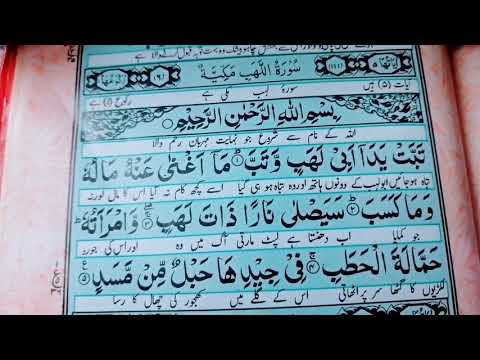 سُوْرَةُ اللَّهَبِ مَكِّيَّةٌ
آیات (۵) ہیں سورۃ لہب مکی ہے رکوع (۱) ہے
بِسْمِ اللهِ الرَّحْمٰنِ الرَّحِيْمِ
اللہ کے نام سے شروع جو نہایت مہربان رحم والا
تَبَّتْ يَدَآ اَبِيْ لَهَبٍ وَّتَبَّ ۱ مَآ اَغْنٰى عَنْهُ مَالُهٗ
تباہ ہو جائیں ابولہب کے دونوں ہاتھ اور وہ تباہ ہو ہی گیا اسے کچھ کام نہ آیا اس کا مال اور نہ
وَمَا كَسَبَ ۲ سَيَصْلٰى نَارًا ذَاتَ لَهَبٍ ۳ وَّامْرَاَتُهٗ
جو کمایا اب دھنستا ہے لپٹ مارتی آگ میں وہ اور اس کی جورو
حَمَّالَةَ الْحَطَبِ ۴ فِيْ جِيْدِهَا حَبْلٌ مِّنْ مَّسَدٍ ۵
لکڑیوں کا گٹھا سر پر اٹھاتی اس کے گلے میں کھجور کی چھال کا رسا